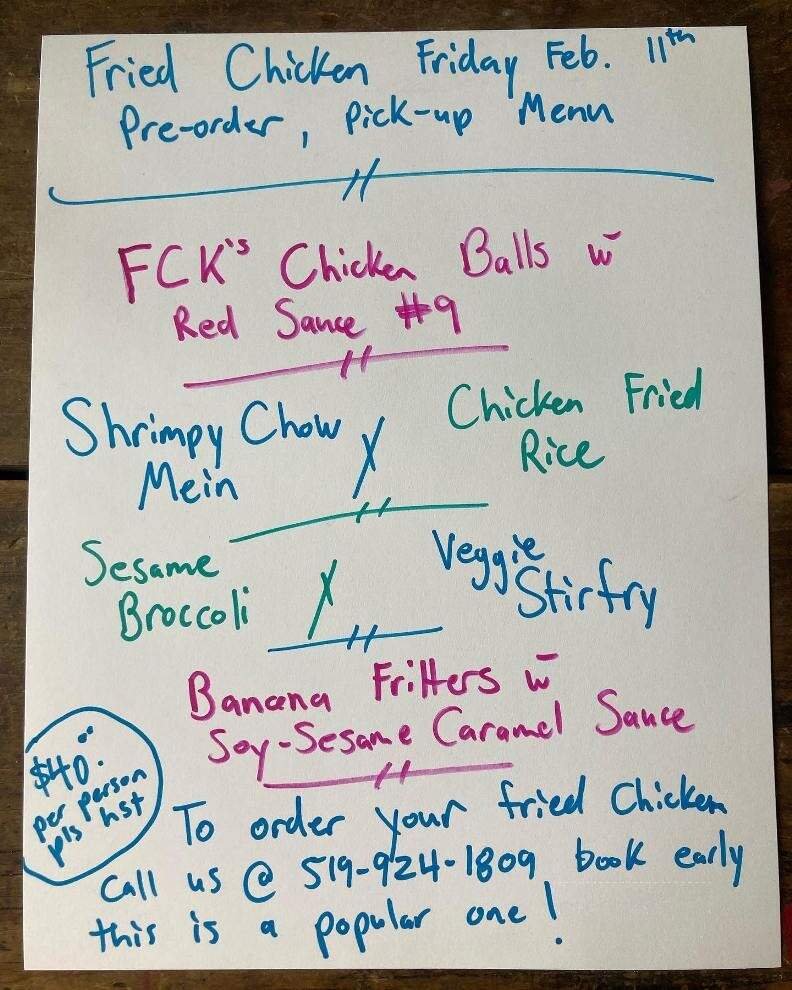 Fried Chicken Friday Feb. 11th
Pre-order, Pick-up Menu
FCK's Chicken Balls w
Red Sauce #9
Shrimpy Chow
Mein
Chicken Fried
Rice
Sesame
Broccoli
Veggie
Stirfry
Banana Fritters w
Soy-Sesame Caramel Sauce
$40.00
per person
pls hst
To order your fried Chicken
Call us @ 519-924-1809 book early
this is a popular one!